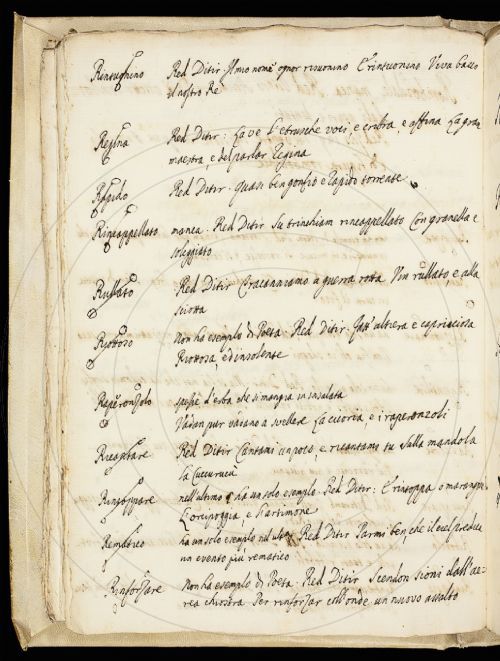 Rintuonino Red. Ditir. Il mio nome ognor risuonino E rintuonino Viva bacco
il nostro Re
Regina Red. Ditir: Là ve l'etrusche voci e cribra, e affina La gran
maestra, e del parlar Regina
Rapido Red. Ditir: quasi ben gonfio e Rapido torrente
Rincappellato manca: Red. Ditir Su trinchiam rincappellato Con granella e
soleggiato
Rullato Red. Ditir Tracanniamo a guerra rotta Vin rullato, e alla
sciotta
Riottoso Non ha esempio di Poeta: Red. Ditir: fass' altiera e capricciosa
Riottosa, ed insolente
Raperonzolo spezie d'erba che si mangia in insalata
Vadan pur vadano a svellere La cicoria, e i raperonzoli
Ricantare Red. Ditir Cantami un poco, e ricantami tu Sulla mandola
la Cuccurucù
Rintoppare nell'ultimo § ha un solo esempio. Red. Ditir: E rintoppa o marangone
L'orcipoggia, e l'artimone
Rematico ha un solo esempio Red. Ditir Parmi ben, che il ciel predica
un evento più rematico
Rinforzare Non ha esempio di Poeta: Red. Ditir Scendon sioni dall'ae-
rea chiostra Per rinforzar coll'onde un nuovo assalto